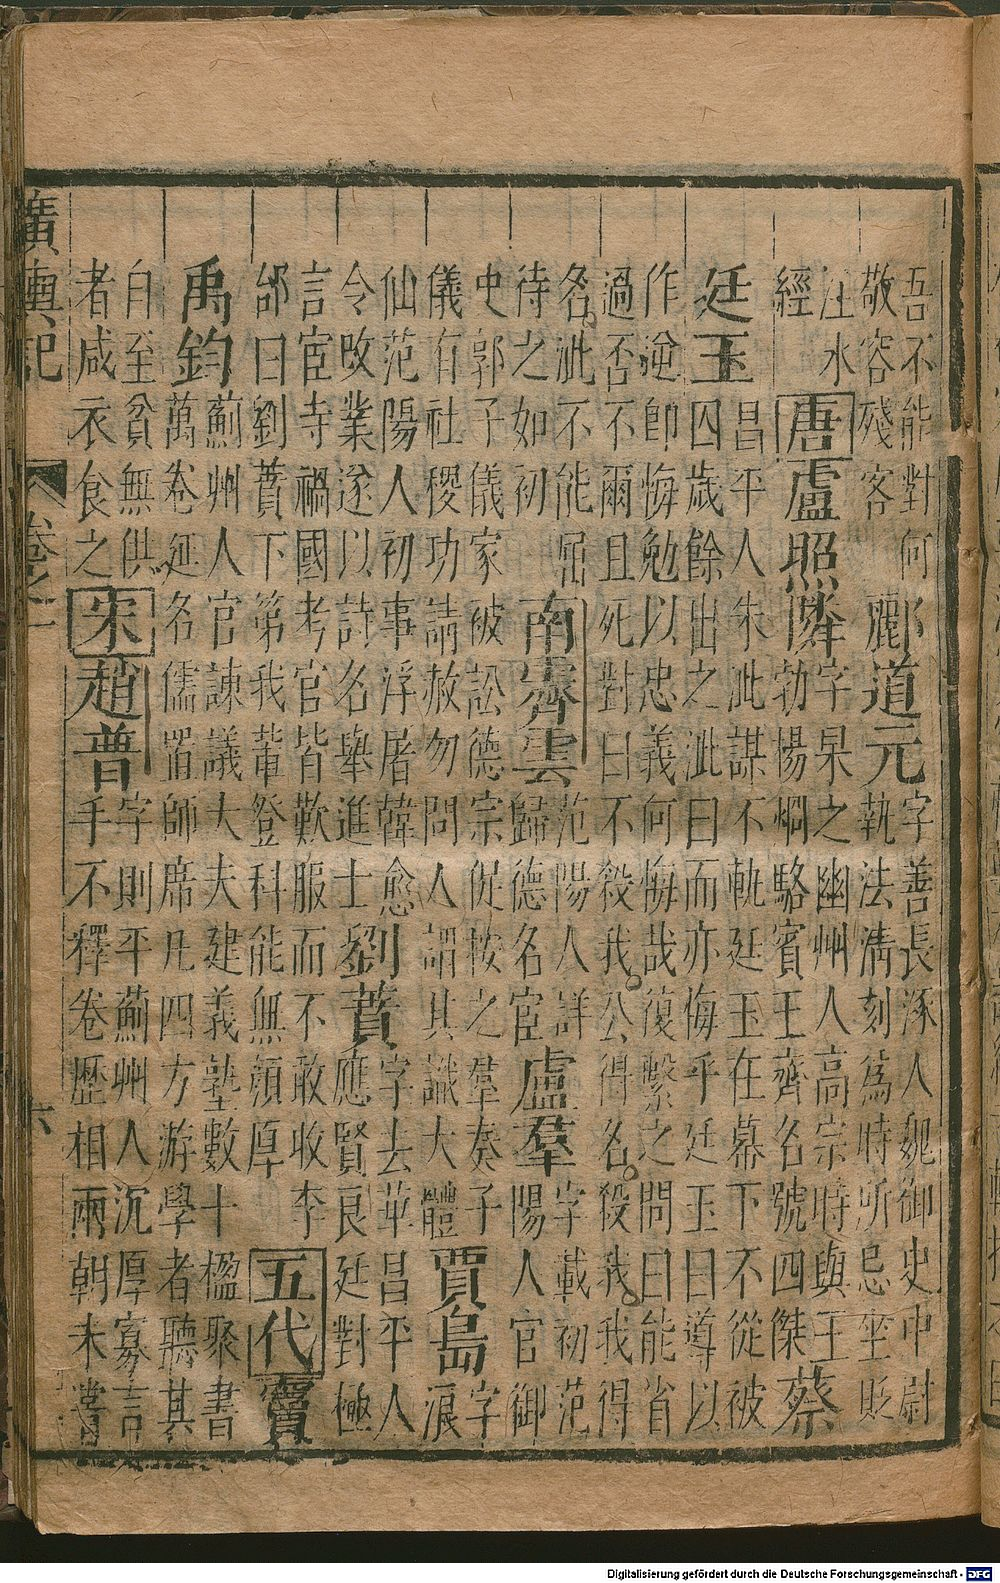 吾不能對何
敬容殘客
酈道元
字善長涿人魏御史中尉
執法清刻爲時所忌坐貶
注水
經
唐
盧照隣
字杲之幽州人高宗時與王
勃楊烱駱賓王齊名號四傑
蔡
廷玉
昌平人朱泚謀不軌廷玉在幕下不從被
四歲餘出之泚曰而亦悔乎廷玉曰導以
作逆卽悔勉以忠義何悔哉復繫之問曰能省
過否不爾且死對曰不殺我公得名殺我我得
名泚不能屈
待之如初
南霽雲
范陽人詳
歸德名宦
盧羣
字載初范
陽人官御
史郭子儀家被訟德宗促按之羣奏子
儀有社稷功請赦勿問人謂其識大體
賈島
字
浪
仙范陽人初事浮屠韓愈
令改業遂以詩名舉進士
劉蕡
字去華昌平人
應賢良廷對極
言宦寺禍國考官皆歎服而不敢收李
郃曰劉蕡下第我輩登科能無顏厚
五代
竇
禹鈞
薊州人官諫議大夫建義塾數十楹聚書
萬卷延名儒置師席凡四方游學者聽其
自至貧無供
者咸衣食之
宋
趙普
字則平薊州人沉厚寡言
手不釋卷歷相兩朝未嘗
廣輿記
卷之一
六
Digitalisierung gefördert durch die Deutsche Forschungsgemeinschaft - DFG